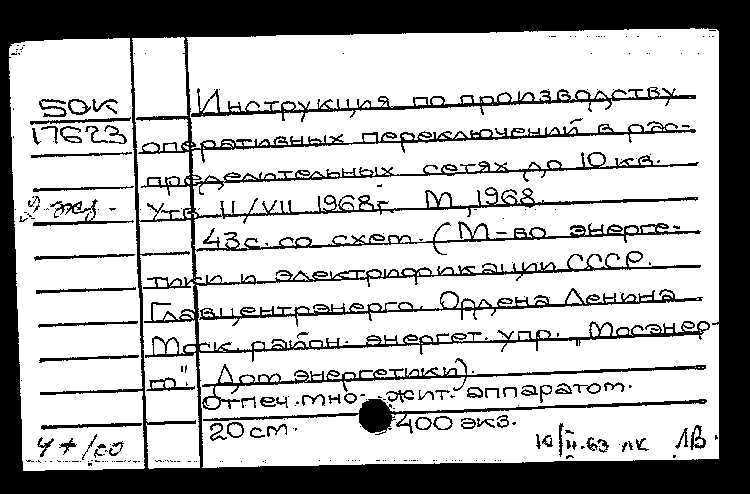 50К
17623
2 экз.
Инструкция по производству
оперативных переключений в рас-
пределительных сетях до 10 кв.
Утв. 11/VII 1968г. М., 1968.
43с. со схем. (М-во энерге-
тики и электрификации СССР.
Главцентрэнерго. Ордена Ленина
Моск. район. энергет. упр. „Мосэнер-
го". Дом энергетики).
Отпеч. мно- жит. аппаратом.
20 см. 400 экз.